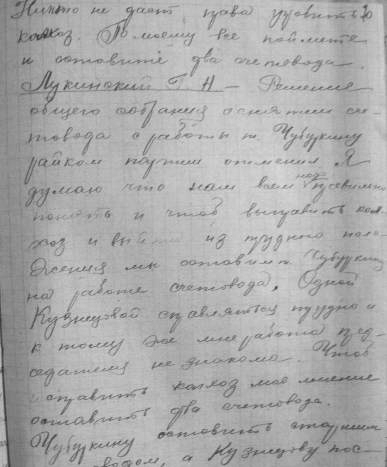 Никто не даст права гробить
колхоз. По моему все поймете
и оставите два счетовода.
Лукинский Г. Н. – Решение
общего собрания о снятии сче-
товода с работы т. Чубуркину
райком партии отменил. Я
думаю что нам всем надо правильно
понять и чтоб выправить кол-
хоз и выйти из трудного поло-
жения мы оставим т. Чубуркину
на работе счетовода. Одной
Кузнецовой справляться трудно и
к тому же мне работа пред-
седателя не знакома. Чтоб
исправить колхоз мое мнение
оставить два счетовода.
Чубуркину оставить старшим
а Кузнецову пос-